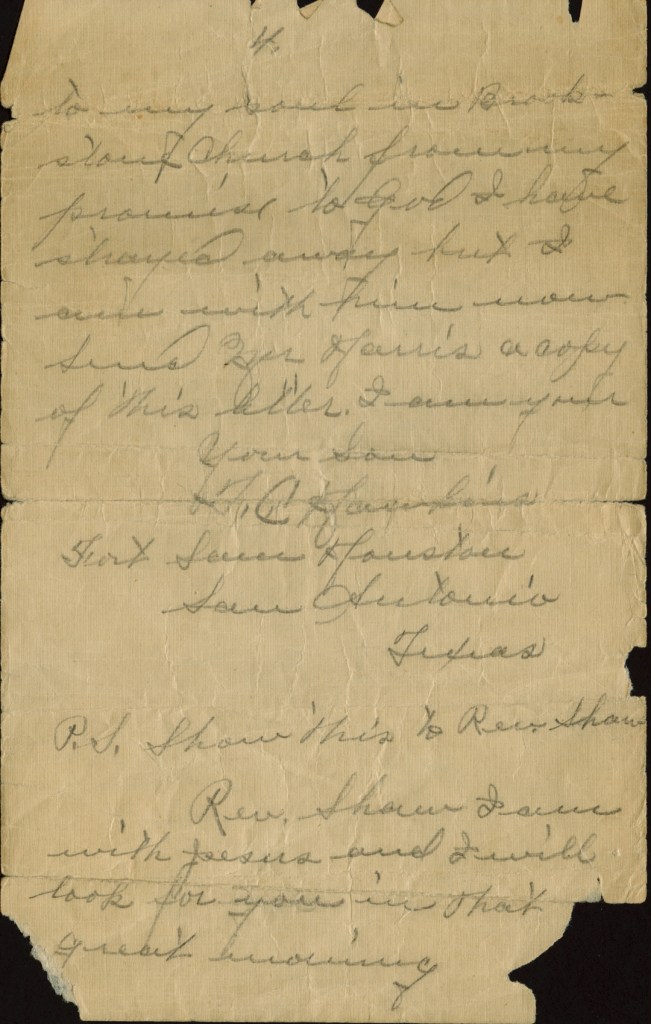 4.
to my soul in Brook-
ston Church from my
promise to God I have
strayed away but I
am with him now
send Mr Harris a copy
of this letter. I am your
Your Son
T. C. Hawkins
Fort Sam Houston
San Antonio
Texas
P.S. Show this to Rev. Shaw
Rev. Shaw I am
with jesus and I will
look for you in that
great morning